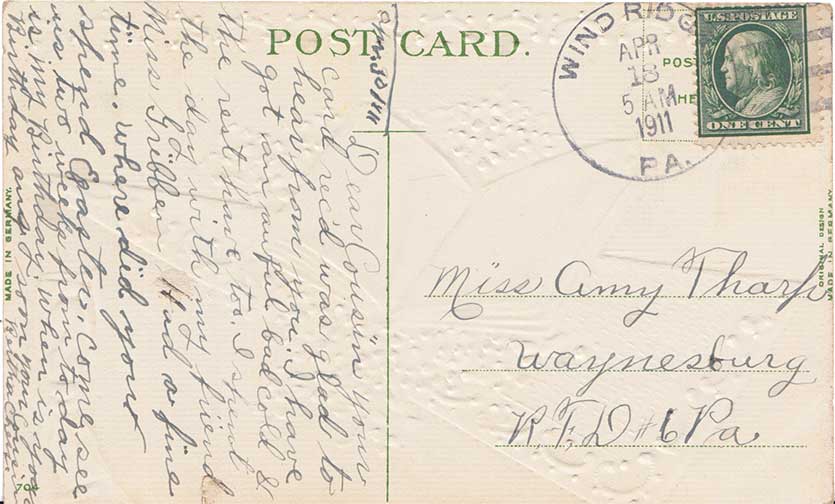 POST CARD.
WIND RIDGE
APR
18
5 AM
1911
PA.
U.S. POSTAGE
ONE CENT
Dear Cousin your
card rec'd was glad to
hear from you. I have
got an awful bad cold &
the rest have too. I spent
the day with my friend
Miss Gribben Had a fine
time. where did your
spend Easter. Come see
us two weeks from to day
is my Birthday when is your
Birthday ans soon your
Cousin
Miss Amy Tharp
Waynesburg
R.F.D #6 Pa
MADE IN GERMANY.
ORIGINAL DESIGN
MADE IN GERMANY.
704